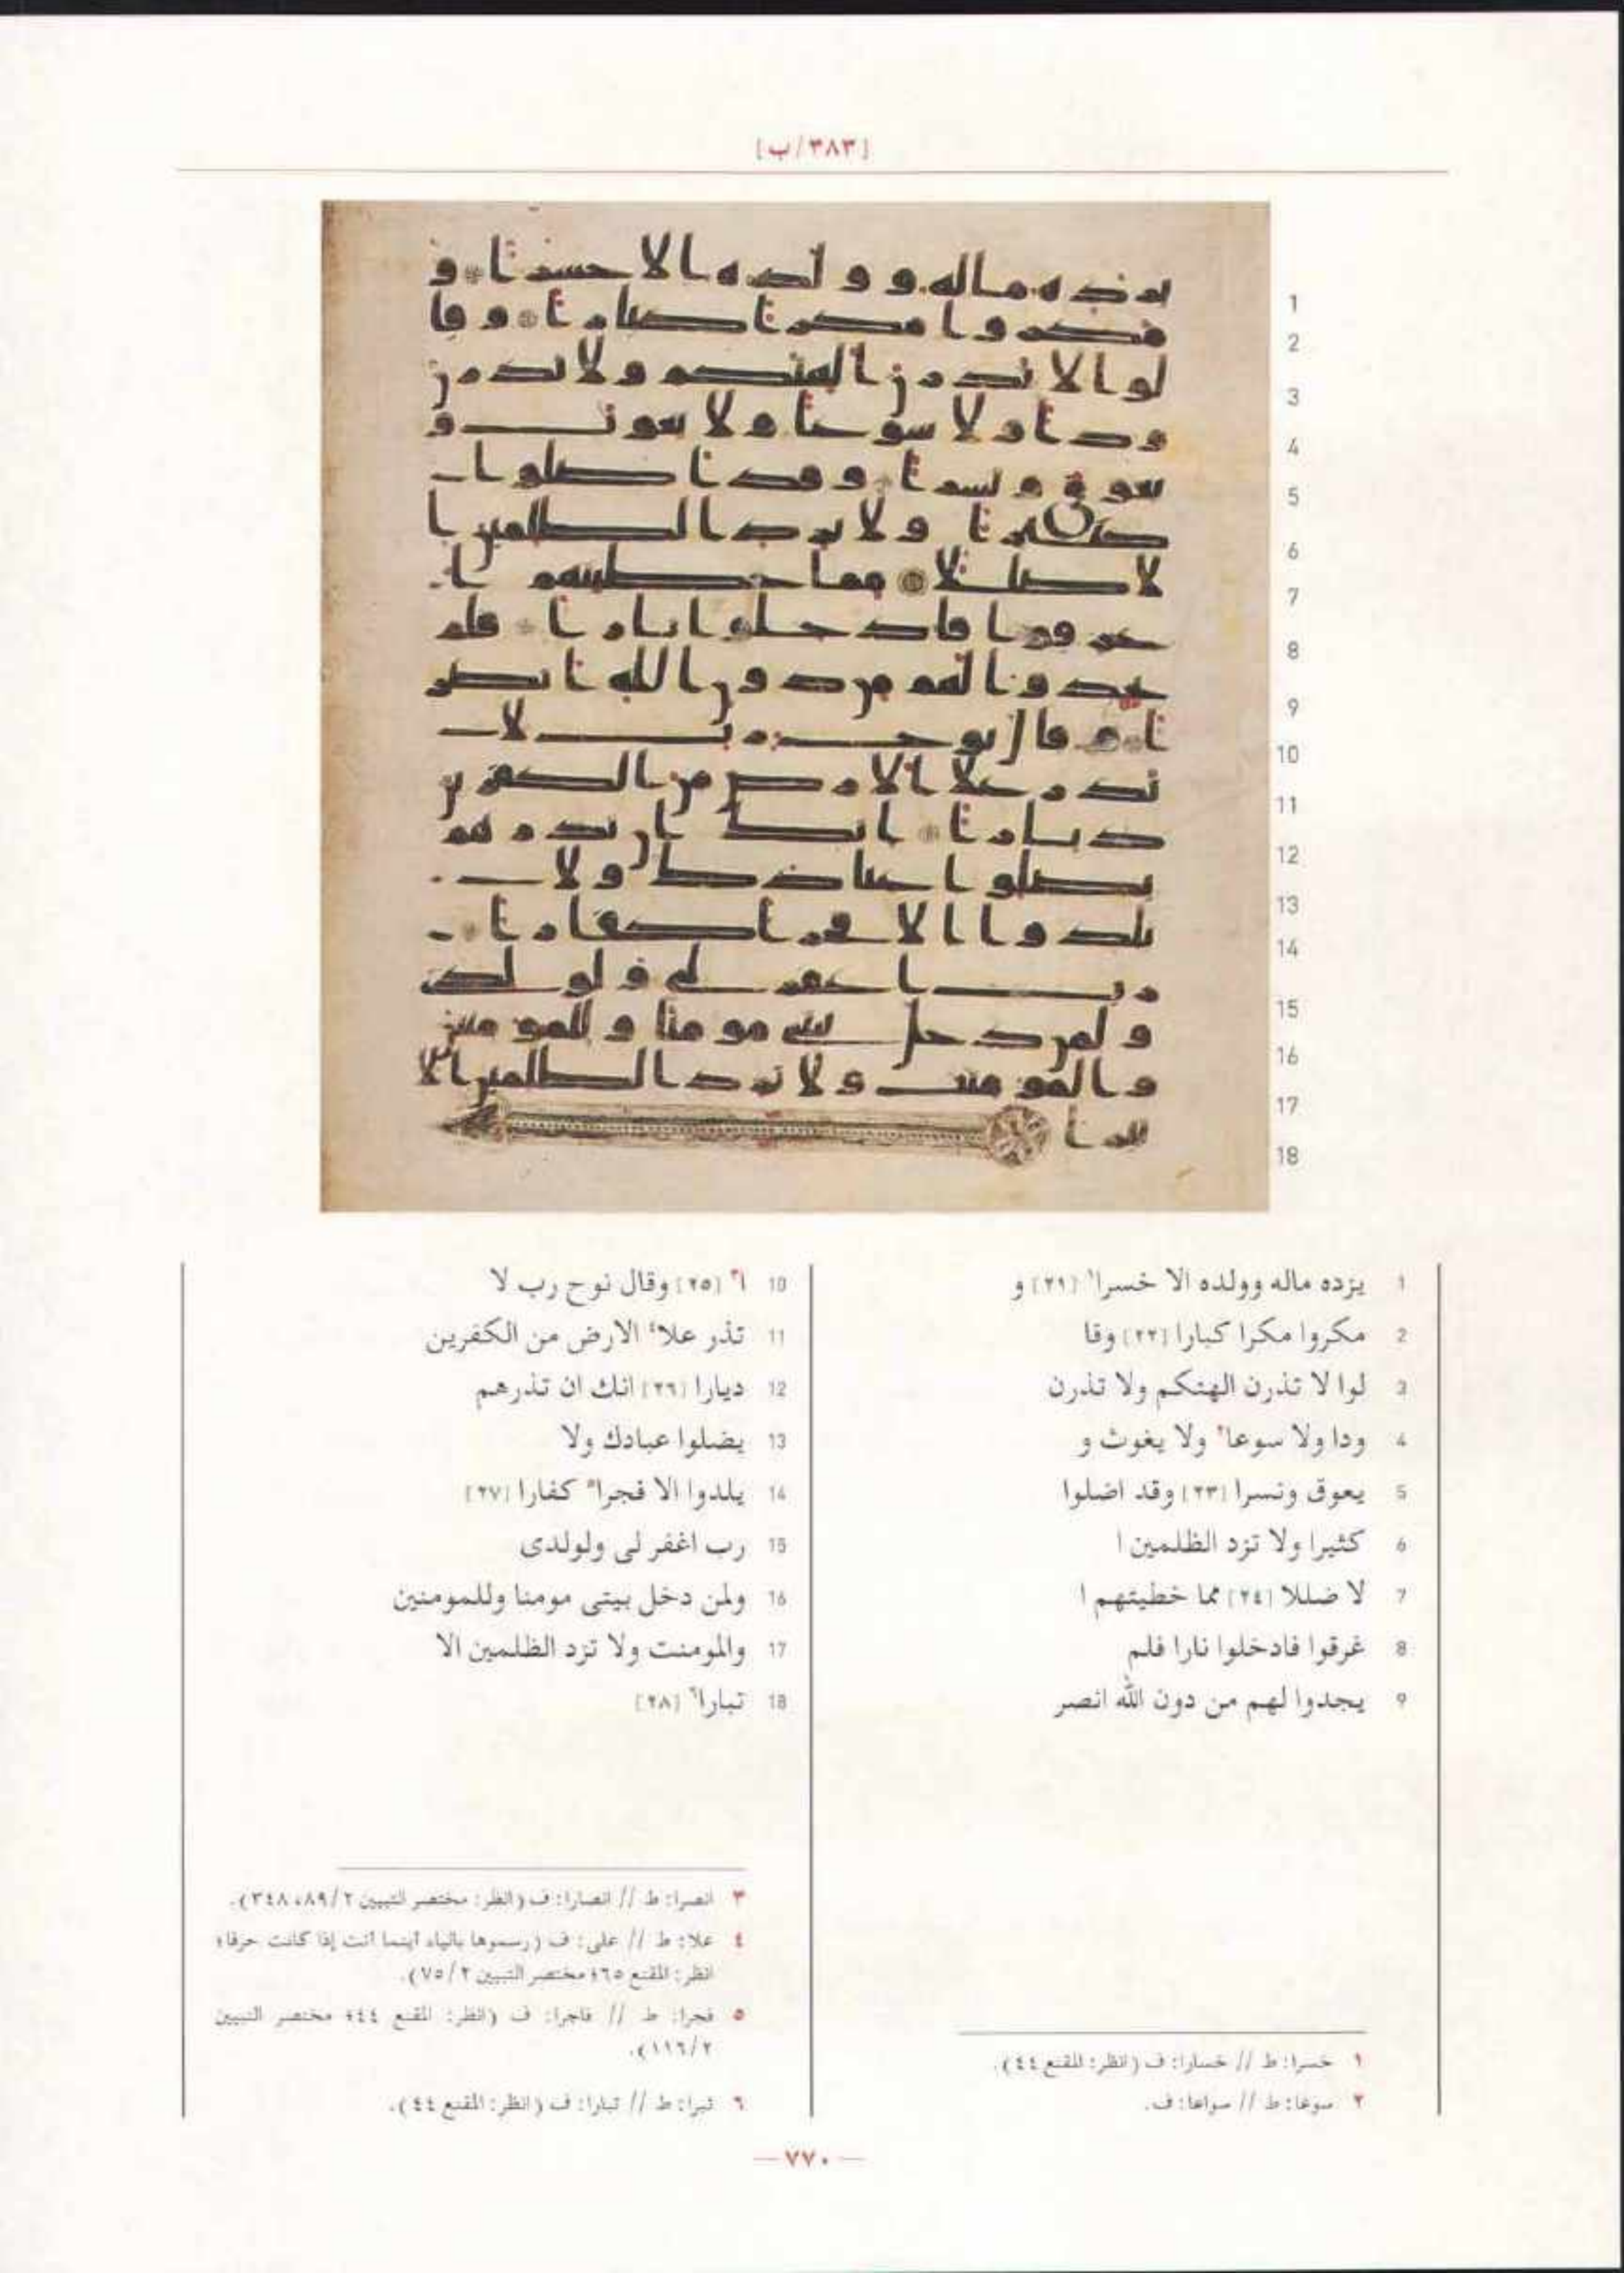 [٣٨٣/ب]
1
2
3
4
5
6
7
8
9
10
11
12
13
14
15
16
17
18
1 يزده ماله وولده الا خسرا١ [٢١] و
2 مكروا مكرا كبارا [٢٢] وقا
3 لوا لا تذرن الهتكم ولا تذرن
4 ودا ولا سوعا٢ ولا يغوث و
5 يعوق ونسرا [٢٣] وقد اضلوا
6 كثيرا ولا تزد الظلمين ا
7 لا ضللا [٢٤] مما خطيتهم ا
8 غرقوا فادخلوا نارا فلم
9 يجدوا لهم من دون الله انصر
١ خسرا: ط // خسارا: ف (انظر: المقنع ٤٤).
٢ سوعا: ط // سواعا: ف.
10 ا٣ [٢٥] وقال نوح رب لا
11 تذر علا٤ الارض من الكفرين
12 ديارا [٢٦] انك ان تذرهم
13 يضلوا عبادك ولا
14 يلدوا الا فجرا٥ كفارا [٢٧]
15 رب اغفر لى ولولدى
16 ولمن دخل بيتى مومنا وللمومنين
17 والمومنت ولا تزد الظلمين الا
18 تبارا٦ [٢٨]
٣ انصرا: ط // انصارا: ف (انظر: مختصر التبيين ٨٩/٢، ٣٤٨).
٤ علا: ط // على: ف (رسموها بالياء أينما أتت إذا كانت حرفا؛
انظر: المقنع ٦٥؛ مختصر التبيين ٧٥/٢).
٥ فجرا: ط // فاجرا: ف (انظر: المقنع ٤٤؛ مختصر التبيين
١١٦/٢).
٦ تبرا: ط // تبارا: ف (انظر: المقنع ٤٤).
— ٧٧٠ —